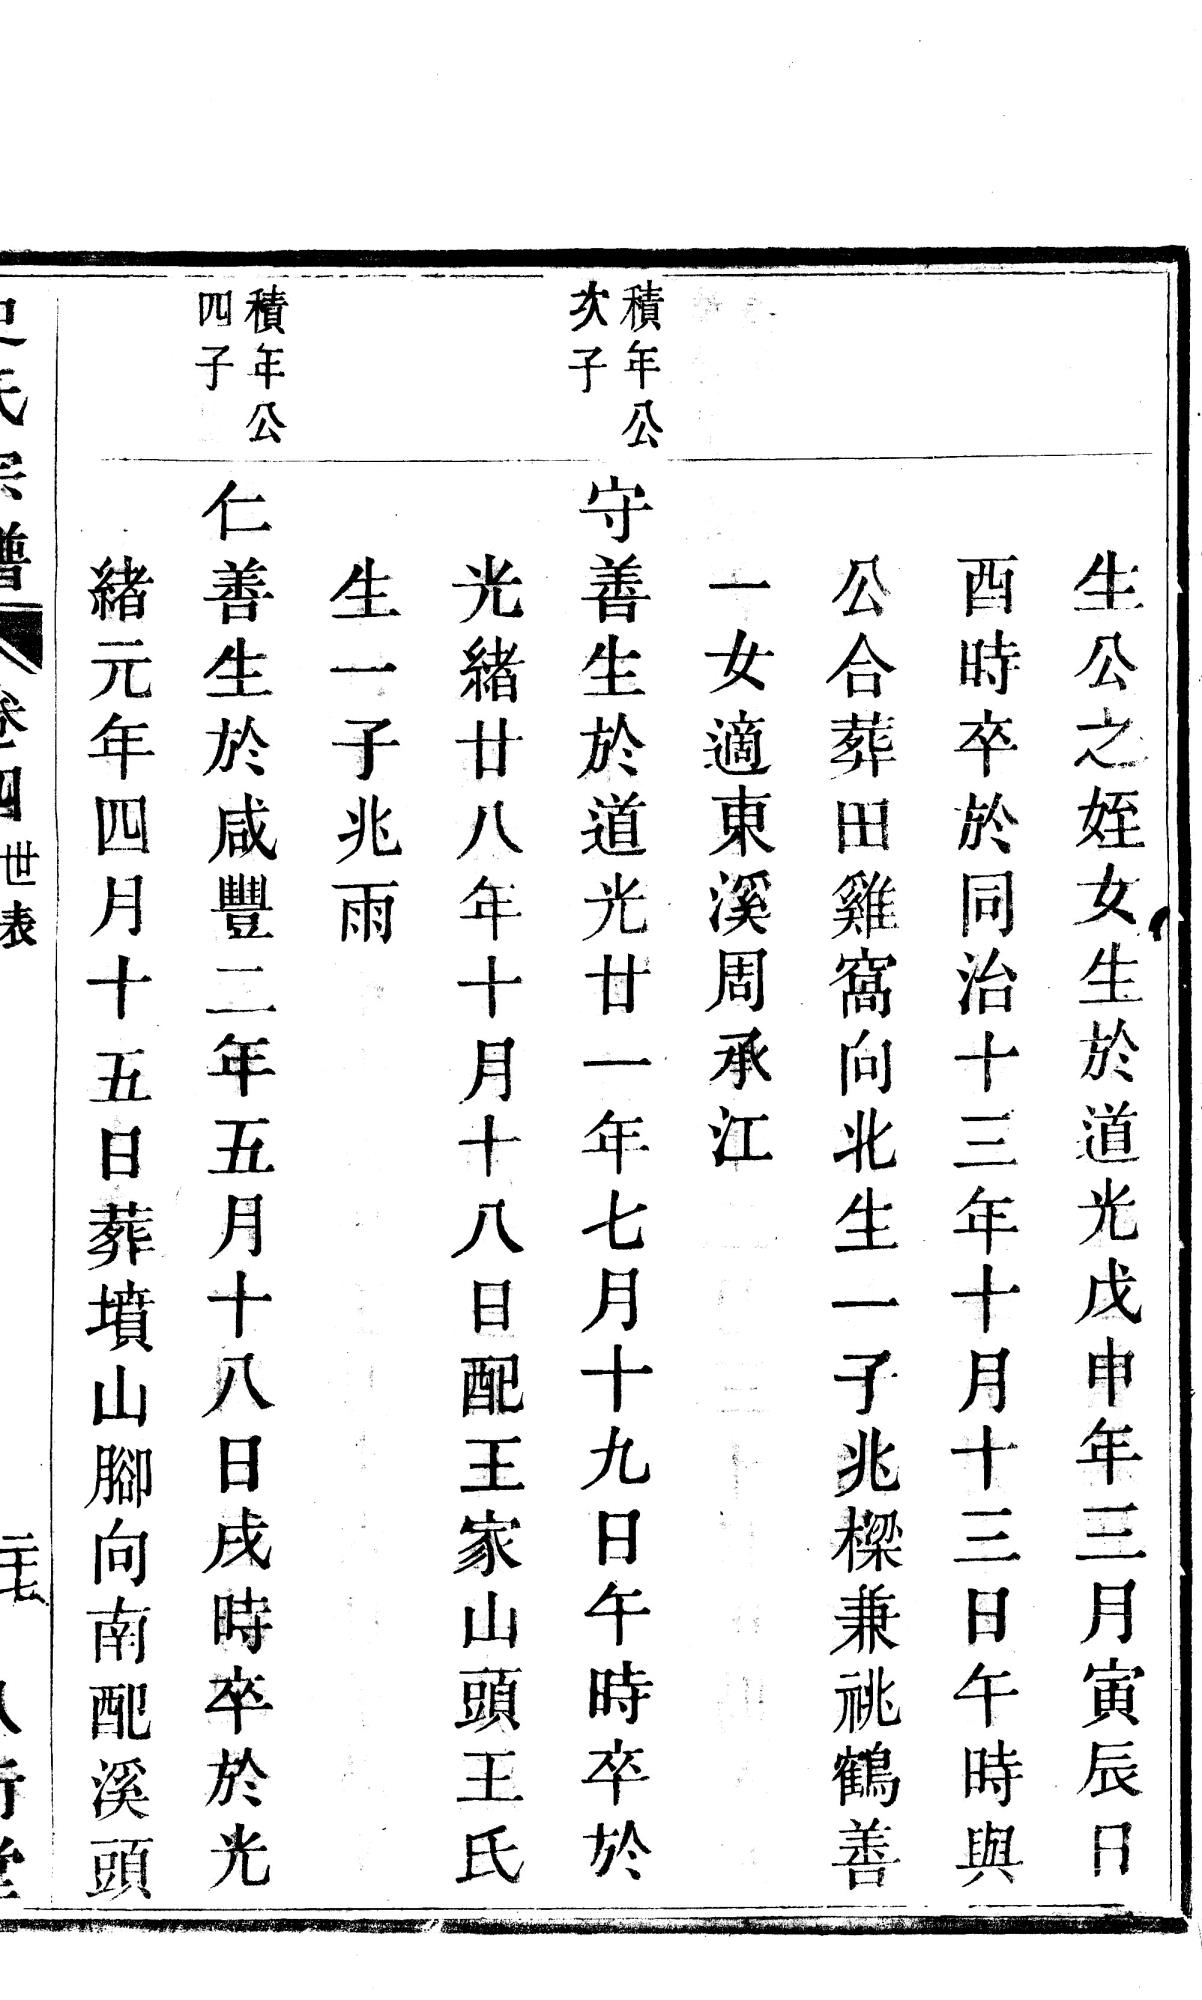 生公之姪女生於道光戊申年三月寅辰日
酉時卒於同治十三年十月十三日午時與
公合葬田雞窩向北生一子兆樑兼祧鶴善
一女適東溪周承江
積年公
次子
守善生於道光廿一年七月十九日午時卒於
光緒廿八年十月十八日配王家山頭王氏
生一子兆雨
積年公
四子
仁善生於咸豐二年五月十八日戌時卒於光
緒元年四月十五日葬墳山腳向南配溪頭
史氏宗譜
卷四
世表
二十七